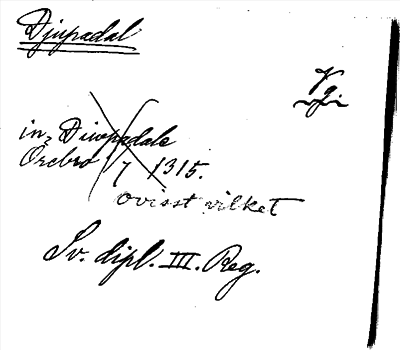 Djupadal
Vg.
in, Diwpadale
Örebro 1/7 1315.
ovisst vilket
Sv. dipl. III. Reg.